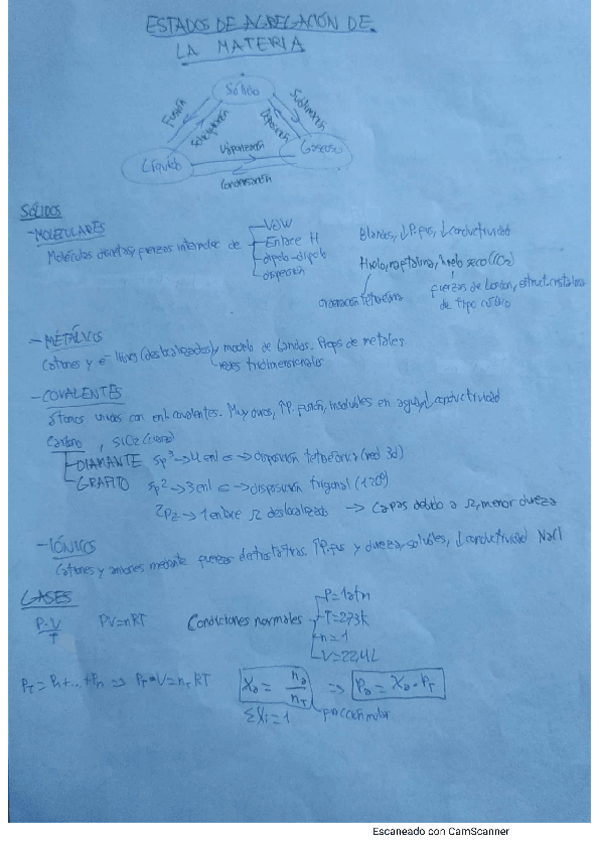 ESTADOS DE AGREGACIÓN DE
LA MATERIA
Sólido
Fusión
Solidificación
Sublimación
Deposición
Líquido
Vaporización
Gaseoso
Condensación
SÓLIDOS
-MOLECULARES
Moléculas discretas, fuerzas intermolec de
VdW
Enlace H
dipolo-dipolo
dispersión
Blandos, ↓P.fus, ↓conductividad
Hielo, naftalina, hielo seco (CO2)
ordenación tetraédrica
fuerzas de London, estruct. cristalina
de tipo cúbico
-METÁLICOS
Cationes y e- libres (deslocalizados) y modelo de bandas. Props de metales
redes tridimensionales
-COVALENTES
átomos unidos con enl. covalentes. Muy duros, ↑P. fusión, insolubles en agua, ↓conductividad
Carbono, SiO2 (cuarzo)
DIAMANTE sp3 → 4 enl σ → disposición tetraédrica (red 3d)
GRAFITO sp2 → 3 enl σ → disposición trigonal (120º)
2pz → 1 enlace π deslocalizado → Capas debido a π, menor dureza
-IÓNICOS
Cationes y aniones mediante fuerzas electrostáticas. ↑P.fus y dureza, solubles, ↓conductividad NaCl
GASES
P·V/T PV=nRT Condiciones normales
P=1atm
T=273k
n=1
V=22,4L
PT = P1+...+Pn => PT·V = nT RT
Xa = na/nT => Pa = Xa·PT
ΣXi=1 fracción molar
Escaneado con CamScanner